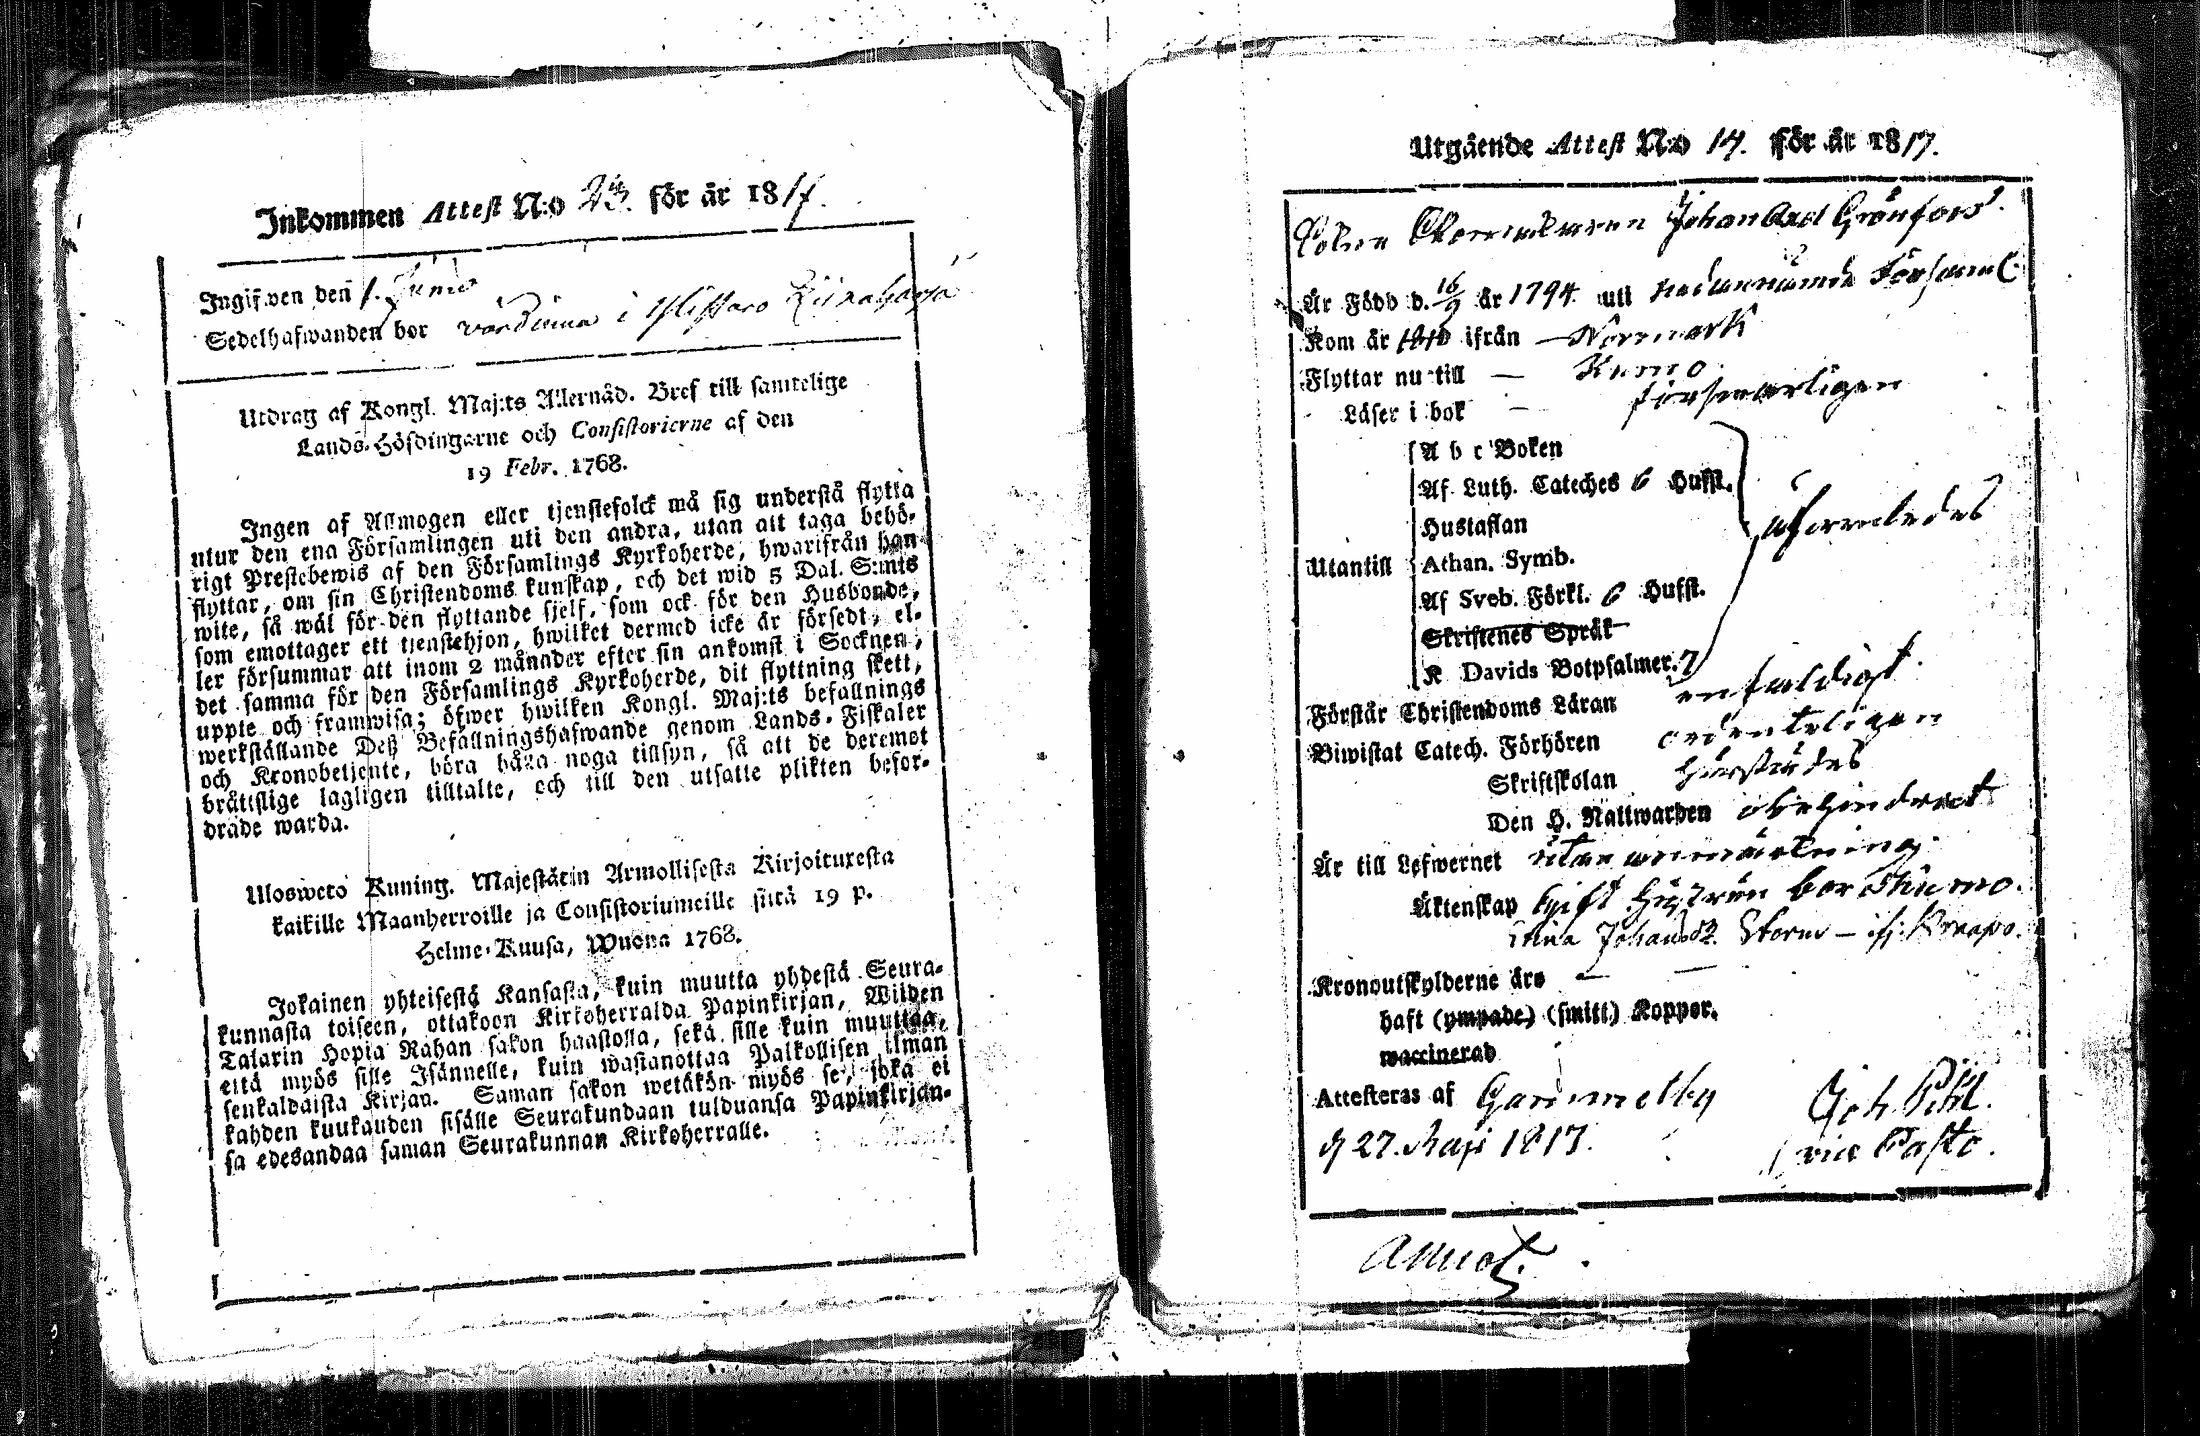 Inkommen Attest N:o 23. för år 1817.
Ingifwen den 1. Junii
Sedelhafwanden bor i
Utdrag af Kongl. Maj:ts Allernåd. Bref till samtelige
Lands-Höfdingarne och Consistorierne af den
19 Febr. 1768.
Ingen af Allmogen eller tjenstefolck må sig understå flytta
utur den ena Församlingen uti den andra, utan att taga behö-
rigt Prestebewis af den Församlings Kyrkoherde, hwarifrån han
flyttar, om sin Christendoms kunskap, och det wid 5 Dal. S:mts
wite, så wäl för den flyttande sjelf, som ock för den Husbonde,
som emottager ett tjenstehjon, hwilket dermed icke är försedt, el-
ler försummar att inom 2 månader efter sin ankomst i Socknen,
det samma för den Församlings Kyrkoherde, dit flyttning skett,
upple och framwisa; öfwer hwilken Kongl. Maj:ts befallnings
werkställande Deß Befallningshafwande genom Lands-Fiskaler
och Kronobetjente, böra hålla noga tillsyn, så att de deremot
bråttslige lagligen tilltalte, och till den utsatte plikten befor-
drade warda.
Uloswеto Kuning. Majestätin Armollisesta Kirjoituxesta
kaikille Maanherroille ja Consistoriumeille siitä 19 p.
Helme-Kuusa, Wuona 1768.
Jokainen yhteisestä Kansasta, kuin muutta yhdestä Seura-
kunnasta toiseen, ottakoon Kirkoherralda Papinkirjan, Wiiden
Talarin Hopia Rahan sakon haastolla, sekä sille kuin muuttaa,
että myös sille Isännelle, kuin wastanottaa Palkollisen ilman
senkaldaista Kirjan. Saman sakon wetäkön myös se, joka ei
kahden kuukauden sisälle Seurakundaan tulduansa Papinkirjan-
sa edesandaa saman Seurakunnan Kirkoherralle.
Utgående Attest N:o 14. för år 1817.
Johan Axel Grönfors.
Är Född d. 16/9 år 1794 uti nedannämde Församl.
Kom år 1810 ifrån — Norrmark
Flyttar nu till — Kumo
Läser i bok — försvarligen
A b c Boken
Af Luth. Cateches 6 Hufst.
Hustaflan
Utantill Athan. Symb.
Af Sveb. Förkl. 6 Hufst.
Skriftenes Språk
K Davids Botpsalmer. 7
Förstår Christendoms Läran enfaldigt.
Biwistat Catech. Förhören ordenteligen
Skriftskolan härstädes
Den H. Nattwarden obehindrad
Är till Lefwernet utan anmärkning.
Äktenskap Gift Hustrun bor i Kumo.
Storm —
Kronoutskylderne äro —
haft (ympade) (smitt) Koppor.
waccinerad
Attesteras af Gammelby Joh. Pihl.
d 27. Maji 1817. vice Pasto.
Annot.